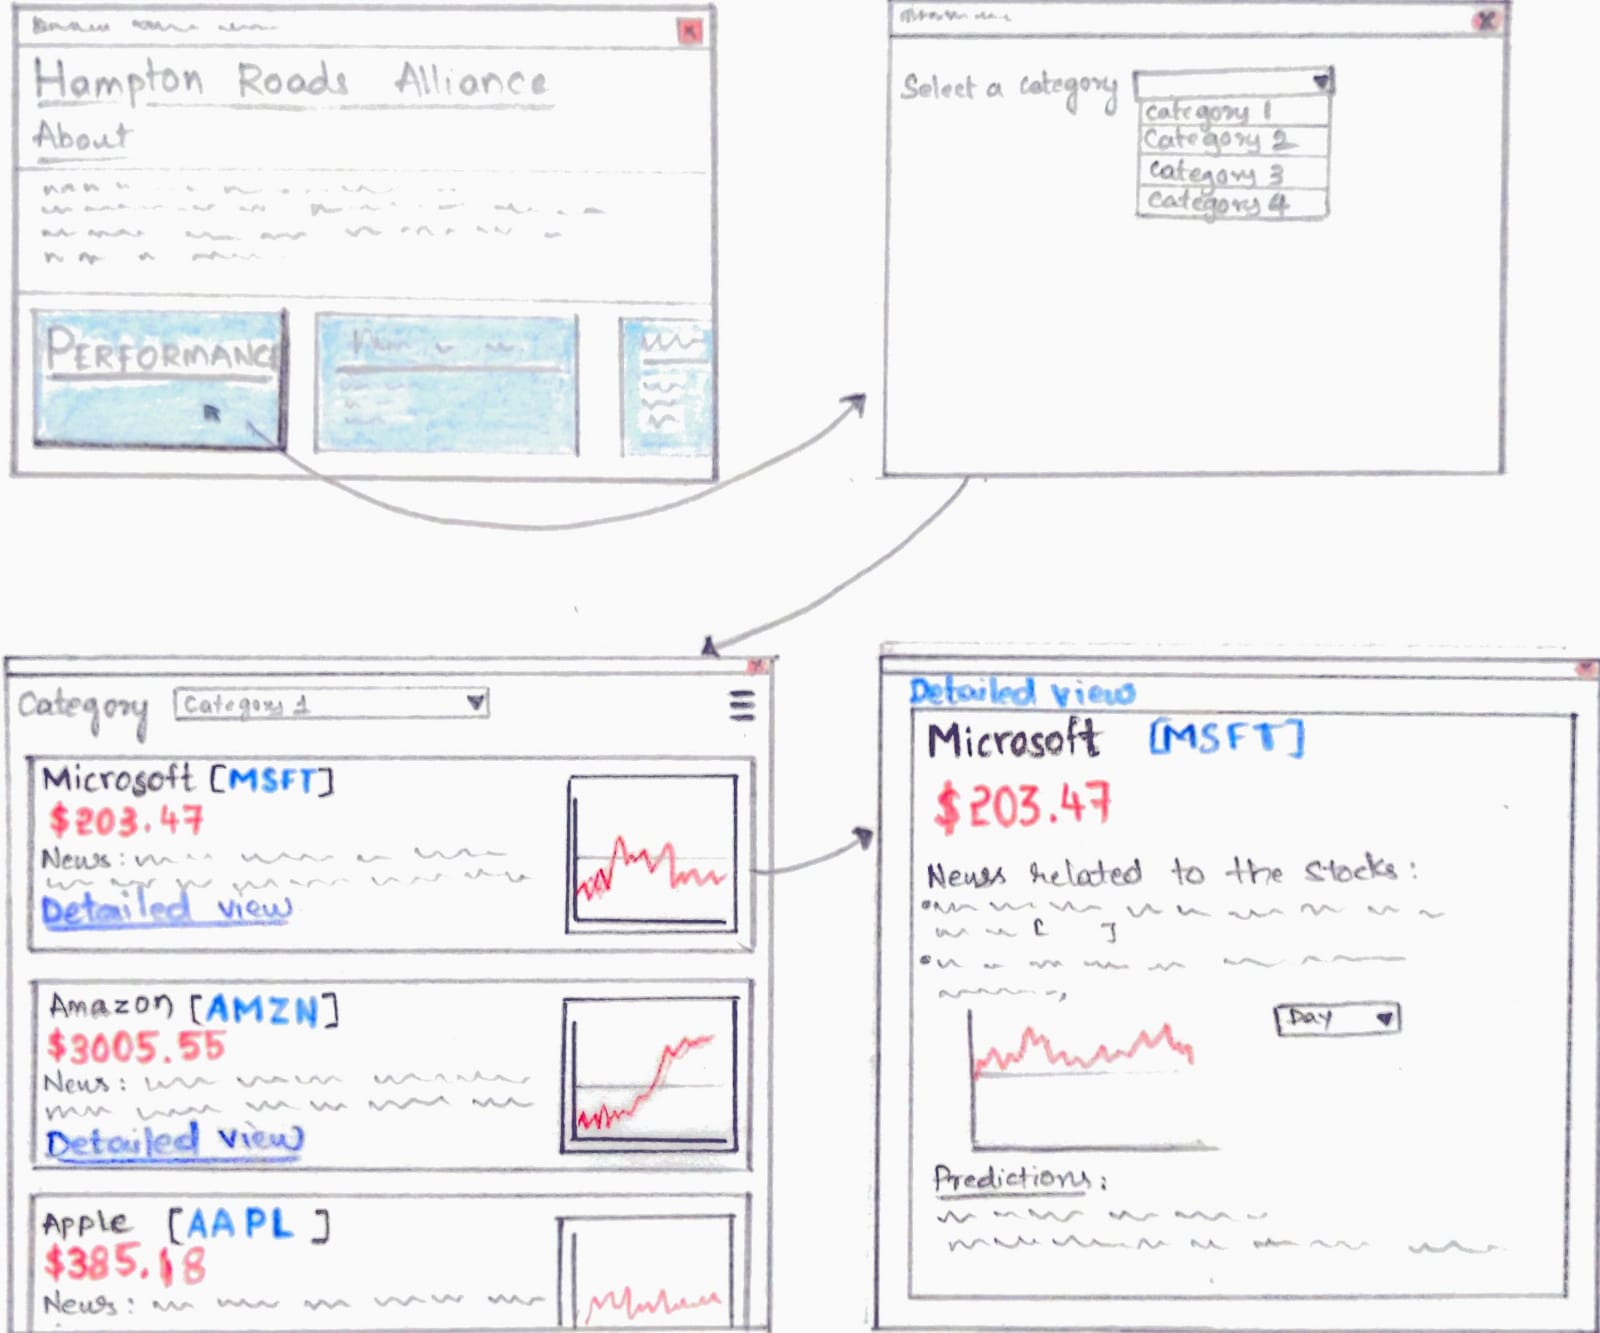 Hampton Roads Alliance
About
PERFORMANCE
Select a category
category 1
Category 2
category 3
category 4
Category Category 1
Microsoft [MSFT]
$203.47
News:
Detailed view
Amazon [AMZN]
$3005.55
News:
Detailed view
Apple [AAPL]
$385.18
News:
Detailed view
Microsoft [MSFT]
$203.47
News related to the stocks:
Day
Predictions: